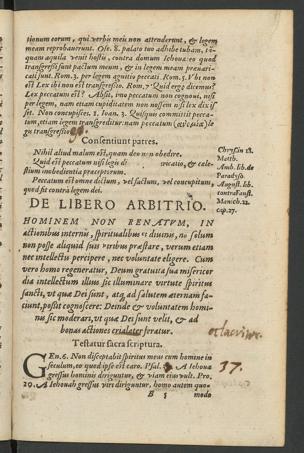 tionum eorum, qui verbis meis non attenderint, & legem
meam reprobauerunt. Ose. 8. palato tuo adhibe tubam, tã-
quam aquila venit hostis, contra domum Iehouæ eo quod
transgressi sunt pactum meum, & in legem meam præuari-
cati sunt. Rom. 3. per legem agnitio peccati. Rom. 5. Vbi non
est Lex ibi non est transgressio. Rom, 7. Quid ergo dicemus?
Lex peccatum est? Absit, imo peccatum non cognoui, nisi
per legem, nam etiam cupiditatem non nossem nisi lex dixis-
set. Non concupisces. 1. Ioan. 3. Quisque committit pecca-
tum, etiam legem transgreditur: nam peccatum (ἀνομία) le-
gis transgressio est.
Consentiunt patres.
Nihil aliud malum est, quam deo non obedire.
Quid est peccatum nisi legis & cale-
stium inobedientia præceptorum.
Peccatum est omne dictum, vel factum, vel concupitum,
quod fit contra legem dei.
Chrysin 18.
Matth.
Amb. lib. de
Paradyso
August. lib.
contra faust.
Manich. 22.
cap. 27.
DE LIBERO ARBITRIO.
HOMINEM NON RENATVM, IN
actionibus internis, spiritualibus & diuinis, no solum
non posse aliquid suis viribus præstare, verum etiam
nec intellectu percipere, nec voluntate eligere. Cum
vero homo regeneratur, Deum gratuita sua misericor
dia intellectum illius sic illuminare virtute spiritus
sancti, vt quæ Dei sunt, atq; ad salutem æternam fa-
ciunt, possit cognoscere: Deinde & voluntatem homi-
nis sic moderari, vt quæ Dei sunt velit, & ad
bonas actiones crialater feratur.
et lacriter
Testatur sacra scriptura.
GEn. 6. Non disceptabit spiritus meus cum homine in
seculum, eo quod ipse est caro. Psal. A Iehoua
37.
gressus hominis diriguntur, & viam eius vult. Pro.
20. A Iehouah gressus viri diriguntur, homo autem quo-
B 3 modo